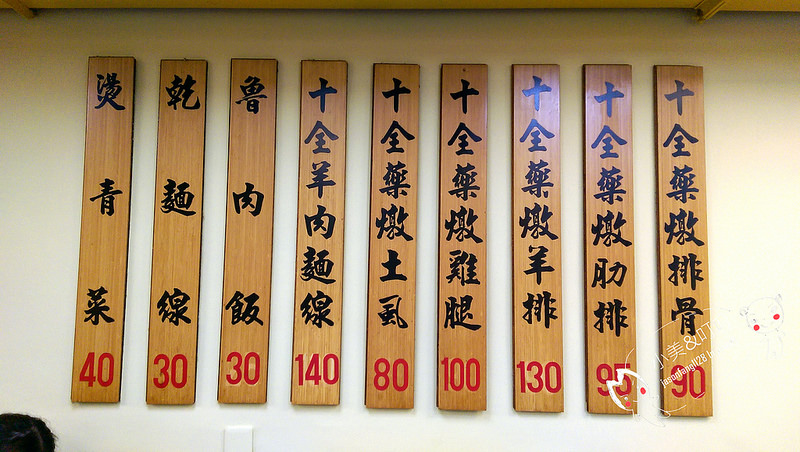 十全藥燉排骨
90
十全藥燉肋排
95
十全藥燉羊排
130
十全藥燉雞腿
100
十全藥燉土虱
80
十全羊肉麵線
140
魯肉飯
30
乾麵線
30
燙青菜
40
小美&